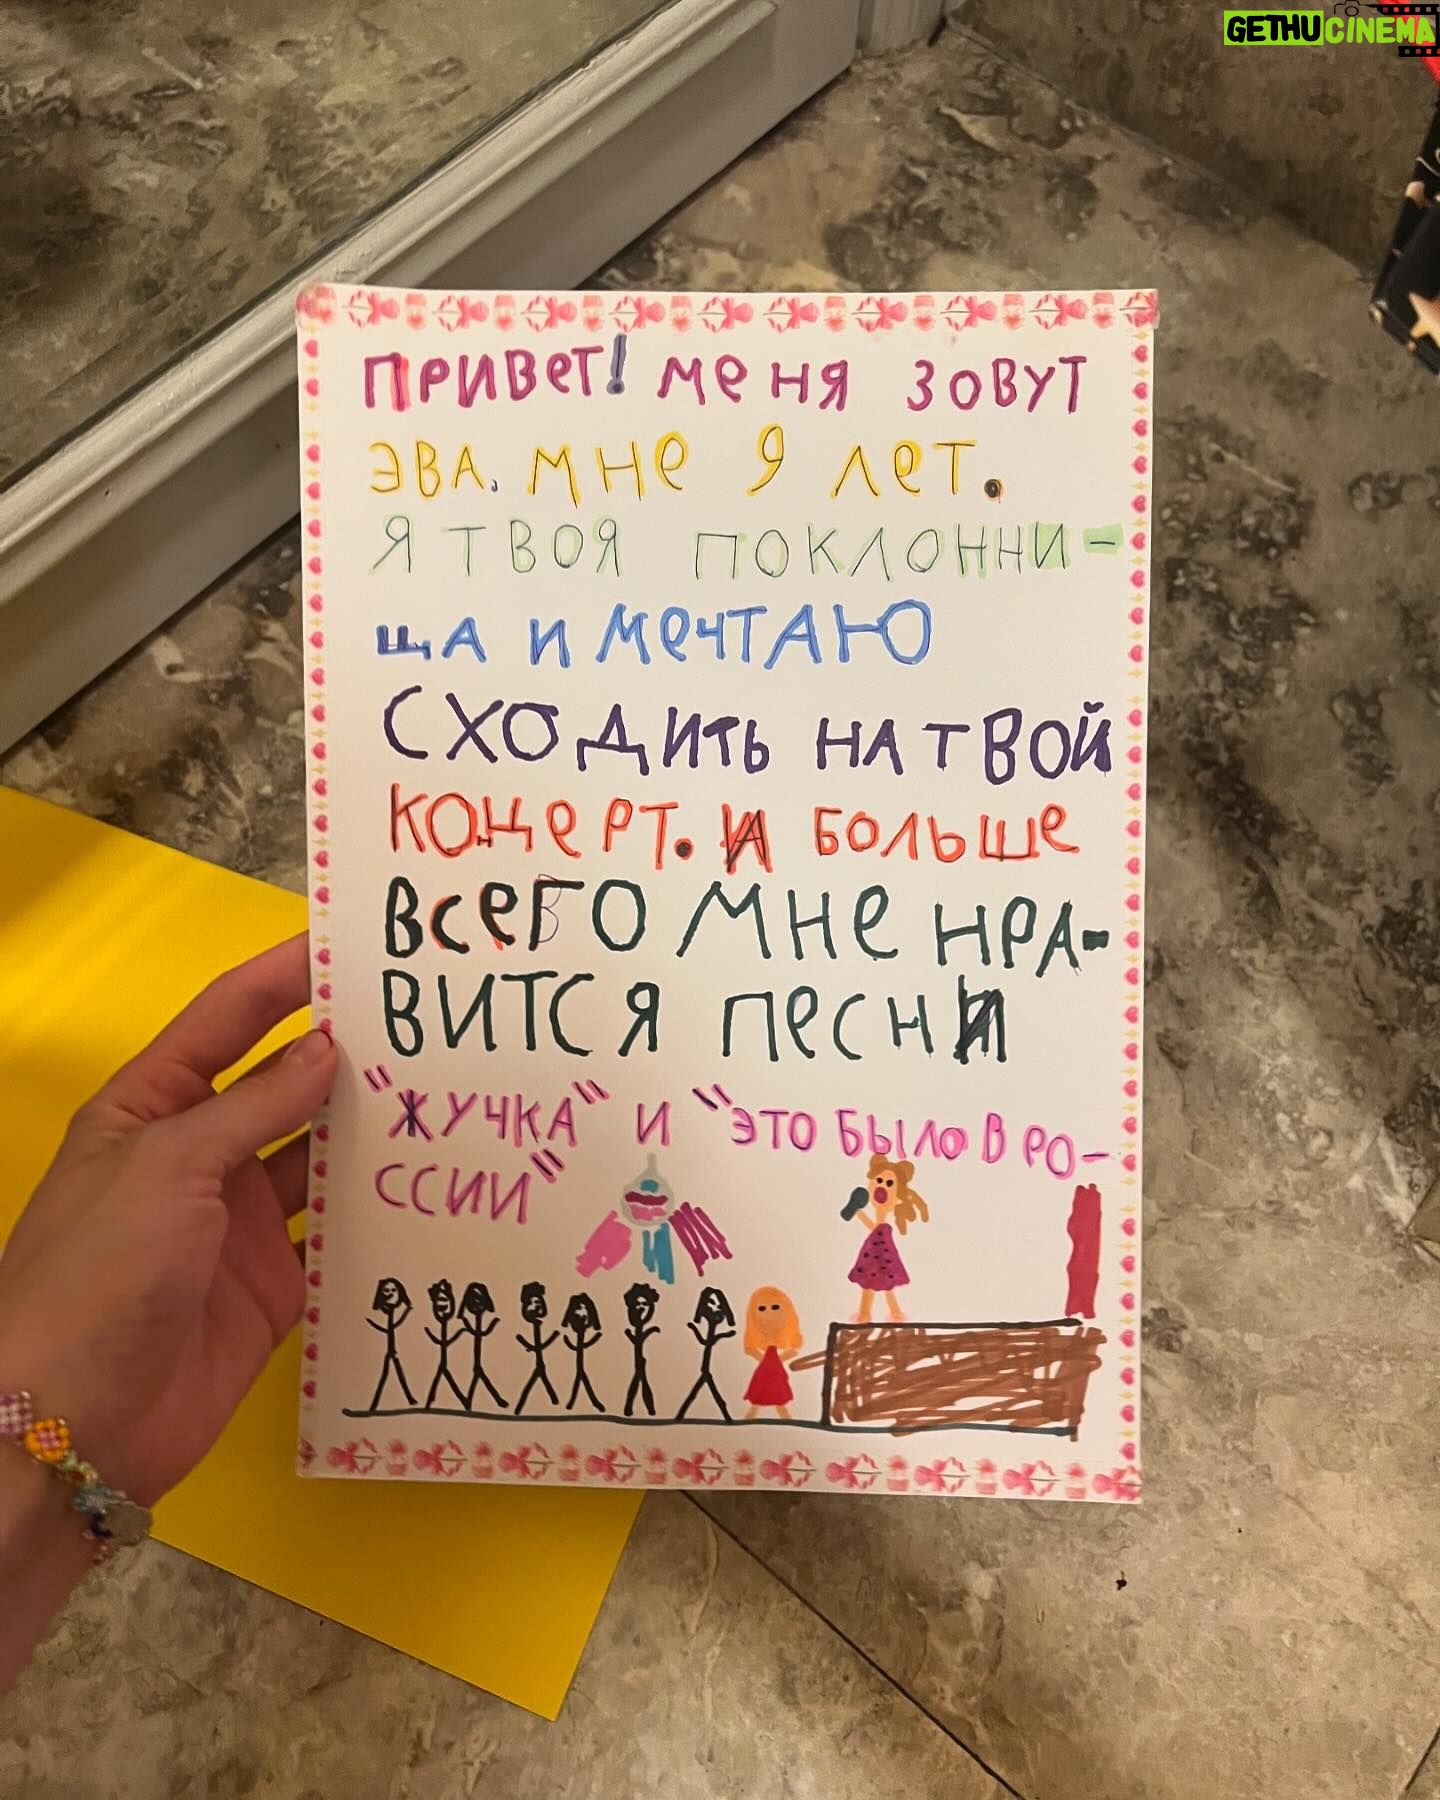 GETHUCINEMA
ПРИВЕТ! МЕНЯ ЗОВУТ
ЭВА. МНЕ 9 ЛЕТ.
Я ТВОЯ ПОКЛОННИ-
ЩА И МЕЧТАЮ
СХОДИТЬ НА ТВОЙ
КОНЦЕРТ. И БОЛЬШЕ
ВСЕГО МНЕ НРА-
ВИТСЯ ПЕСНИ
"ЖУЧКА" И "ЭТО БЫЛО В РО-
ССИИ"